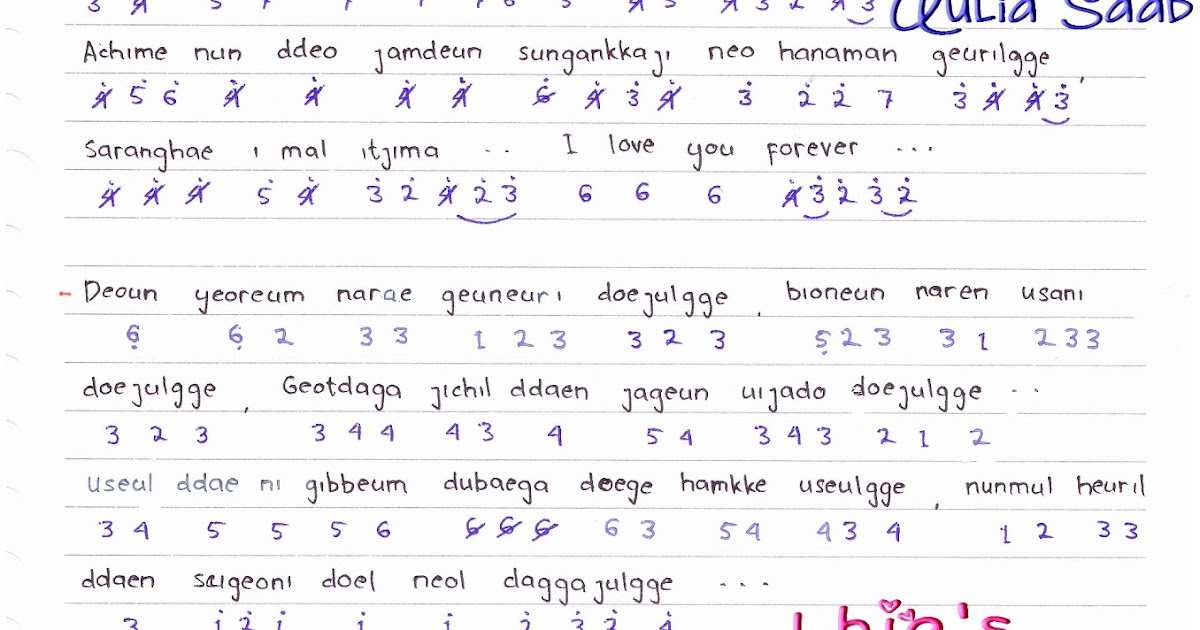 Saab
Achime nun ddeo jamdeun sungankkaji neo hanaman geurilgge,
4 5 6 4 4 4 4 6 4 3 4 3 2 2 7 3 4 4 3
Saranghae i mal itjima .. I love you forever ...
4 4 4 5 4 3 2 4 2 3 6 6 6 4 3 2 3 2
- Deoun yeoreum narae geuneuri doejulgge, bioneun naren usani
6 6 2 3 3 1 2 3 3 2 3 5 2 3 3 1 2 3 3
doejulgge, Geotdaga jichil ddaen jageun uijado doejulgge ..
3 2 3 3 4 4 4 3 4 5 4 3 4 3 2 1 2
useul ddae ni gibbeum dubaega doege hamkke useulgge, nunmul heuril
3 4 5 5 5 6 6 6 6 6 3 5 4 4 3 4 1 2 3 3
ddaen saigeoni doel neol daggajulgge ...